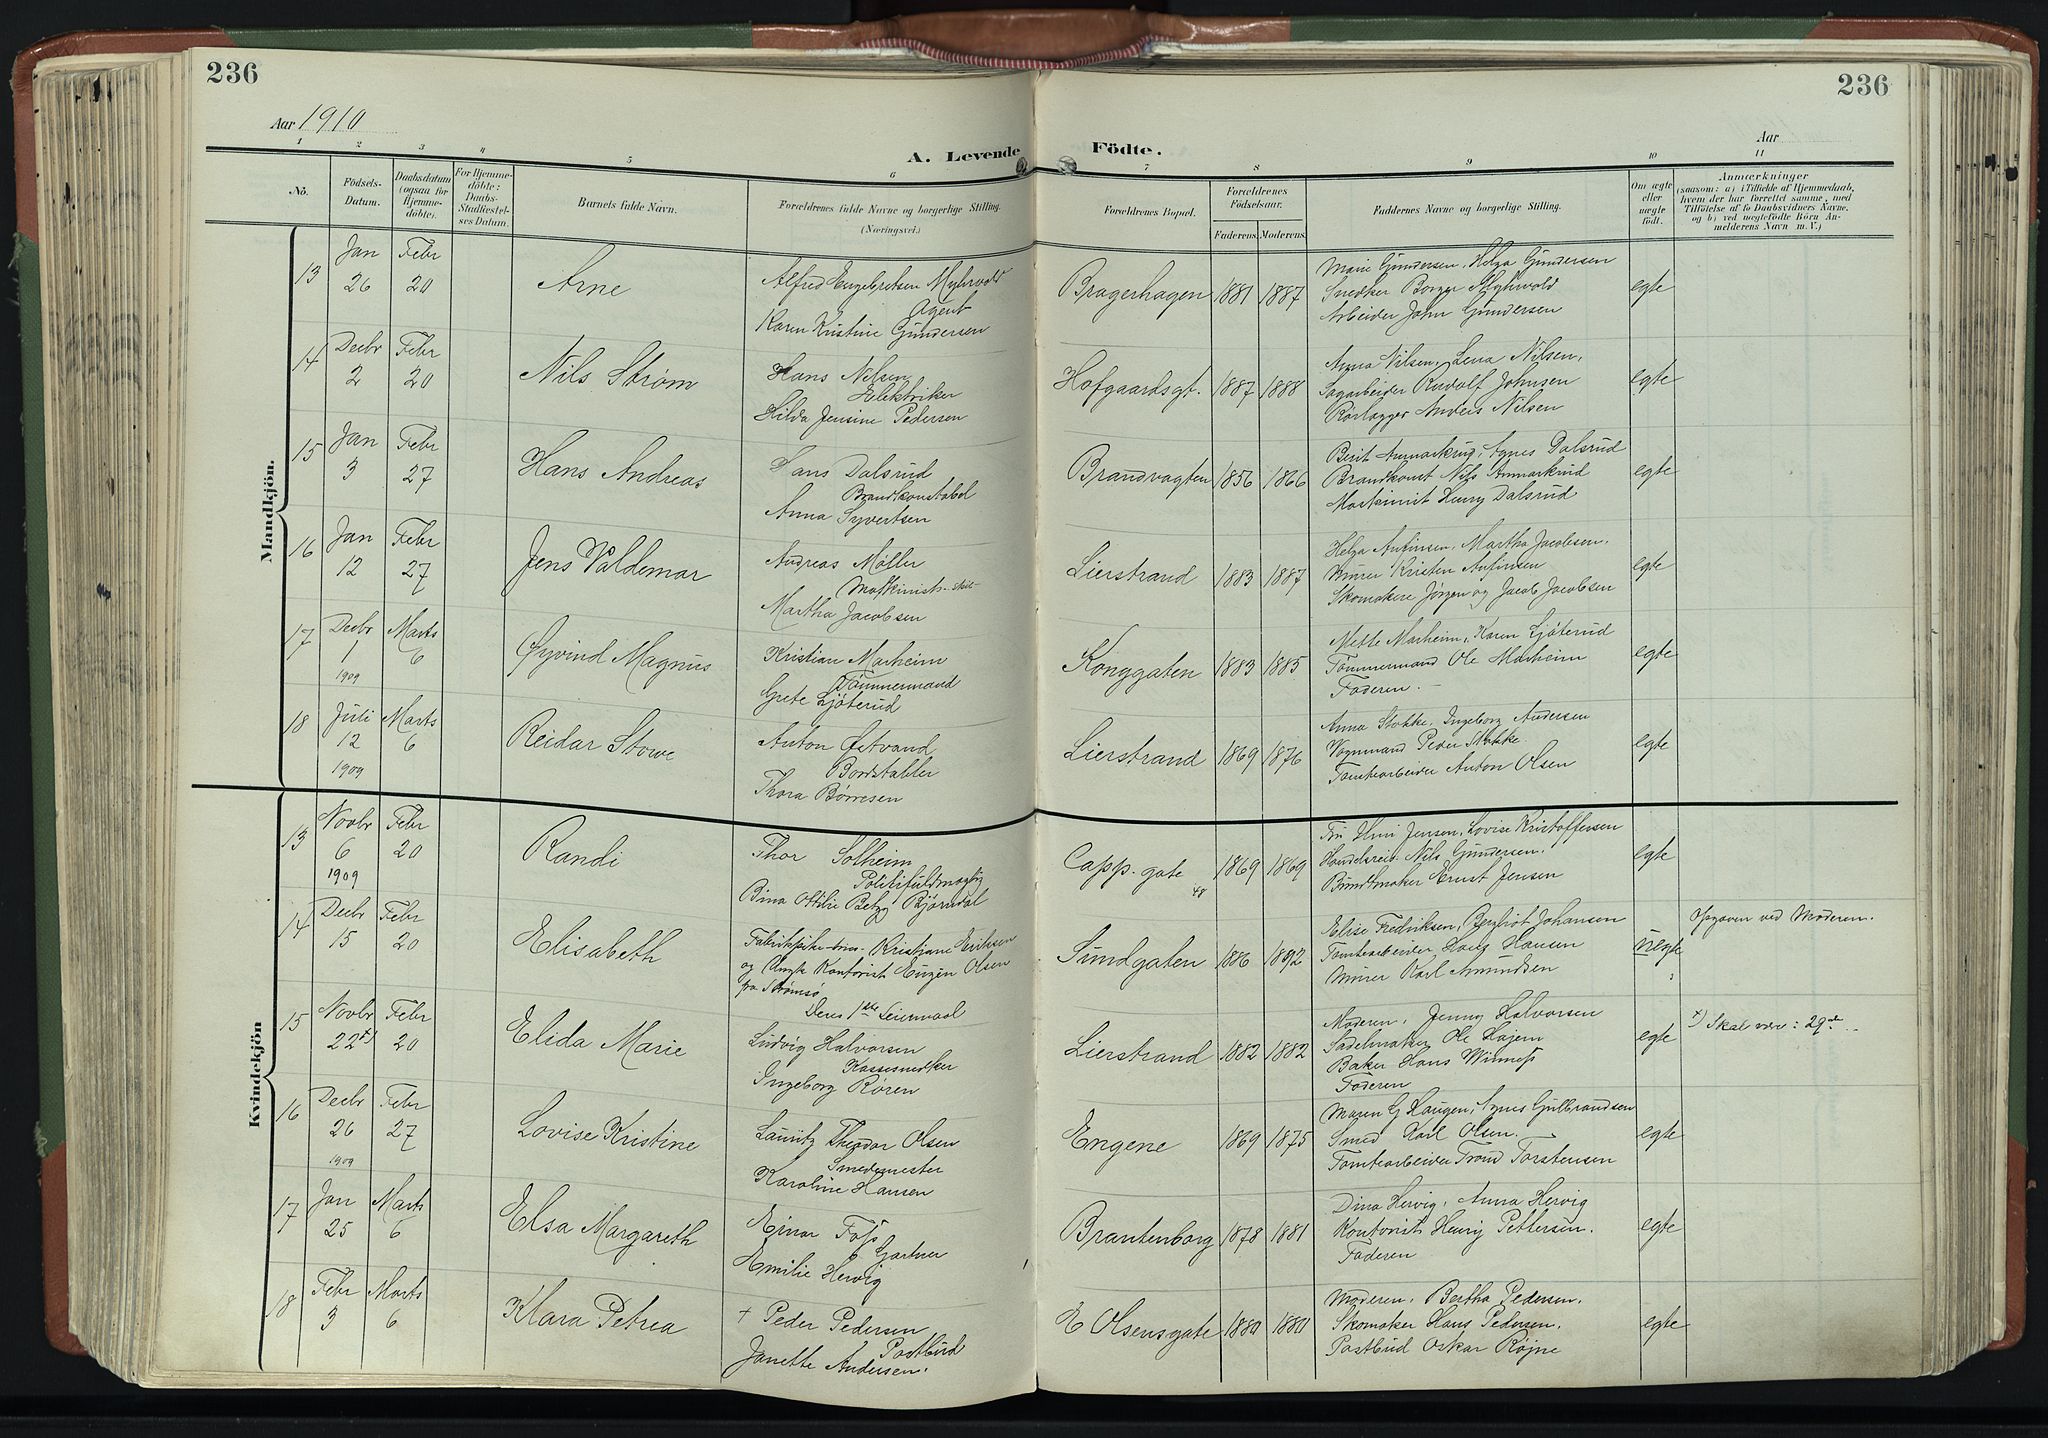 236
236
Aar 1910
Aar
A. Levende Födte.
1 2 3 4 5 6 7 8 9 10 11
Nö.
Födsels-
Datum.
Daabsdatum
(ogsaa for
Hjemme-
döbte).
For Hjemme-
döbte:
Daabs-
Stadfæstel-
ses Datum.
Barnets fulde Navn.
Forældrenes fulde Navne og borgerlige Stilling.
(Næringsvei.)
Forældrenes Bopæl.
Forældrenes
Födselsaar.
Faderens. Moderens.
Faddernes Navne og borgerlige Stilling.
Om ægte
eller
uægte
födt.
Anmærkninger
(saasom: a) i Tilfælde af Hjemmedaab,
hvem der har forrettet samme, med
Tilföielse af to Daabsvidners Navne,
og b) ved uægtefödte Börn An-
melderens Navn m. V.)
Mandkjön.
13
Jan
26
Febr
20
Arne
Alfred Engebretsen Myhrvold
Agent
Karen Kristine Gundersen
Bragerhagen 1881 1887
Marie Gundersen, Helga Gundersen
Snedker Borger Myhrvold
Arbeider John Gundersen
egte
14
Decbr
2
Febr
20
Nils Strøm
Hans Nilsen
Elektriker
Hilda Jensine Pedersen
Hofgaardsgt. 1887 1888
Anna Nilsen, Lena Nilsen,
Sagarbeider Rudolf Johnsen
Rørlægger Anders Nilsen
egte
15
Jan
3
Febr
27
Hans Andreas
Hans Dalsrud
Brandkonstabel
Anna Syvertsen
Brandvagten 1856 1866
Berit Anmarkrud, Agnes Dalsrud
Brandkonst Nils Anmarkrud
Maskinist Henry Dalsrud
egte
16
Jan
12
Febr
27
Jens Valdemar
Andreas Møller
Martha Jacobsen
Lierstrand 1883 1887
Helga Anfinsen, Martha Jacobsen,
Murer Kristen Anfinsen
Skomakere Jørgen og Jacob Jacobsen
egte
17
Decbr
1
1909
Marts
6
Øyvind Magnus
Kristian Marheim
Tømmermand
Grete Ljøterud
Konggaten 1883 1885
Mette Marheim, Karen Ljøterud
Tømmermand Ole Marheim
Faderen.
egte
18
Juli
12
1909
Marts
6
Reidar Stowe
Anton Østvand
Bordstabler
Thora Børresen
Lierstrand 1869 1876
Anna Stokke, Ingeborg Andersen
Vognmand Peder Stokke
Tomtearbeider Anton Olsen
egte
Kvindekjön
13
Novbr
6
1909
Febr
20
Randi
Thor Solheim
Politifuldmægtig
Bina Ottilie Betzy Bjørndal
Capp. gate 48 1869 1869
Jensen, Lovise Kristoffersen
Handelsreis. Nils Gundersen,
Bundtmaker Ernst Jensen
egte
14
Decbr
15
Febr
20
Elisabeth
Kristjane Eriksen
og Ungk Kontorist Eugen Olsen
fra Strømsø
Deres 1ste Leiermaal
Sundgaten 1886 1892
Elise Fredriksen, Bergliot Johansen
Tomtearbeider Hans Hansen
Murer Karl Amundsen
uegte
Opgaven ved Moderen.
15
Novbr
22 x)
Febr
20
Elida Marie
Ludvig Halvorsen
Kassesnedker
Ingeborg Røren
Lierstrand 1882 1882
Moderen, Jenny Halvorsen
Sadelmaker Ole Hajem
Baker Hans Winness
Faderen
egte
x) Skal være: 29de
16
Decbr
26
1909
Febr
27
Lovise Kristine
Lauritz Theodor Olsen
Smedemester
Karoline Hansen
Engene 1869 1875
Maren G Haugen, Agnes Gulbrandsen
Smed Karl Olsen.
Tomtearbeider Trond Torstensen
egte
17
Jan
25
Marts
6
Elsa Margareth
Einar Foss
Gartner
Emilie Hervig
Brantenborg 1878 1881
Dina Hervig, Anna Hervig
Kontorist Henry Pettersen.
Faderen
egte
18
Febr
3
Marts
6
Klara Petrea
+ Peder Pedersen
Postbud
Janette Andersen.
E Olsensgate 1880 1880
Moderen, Bertha Pedersen.
Skomaker Hans Pedersen.
Postbud Oskar Røjne
egte